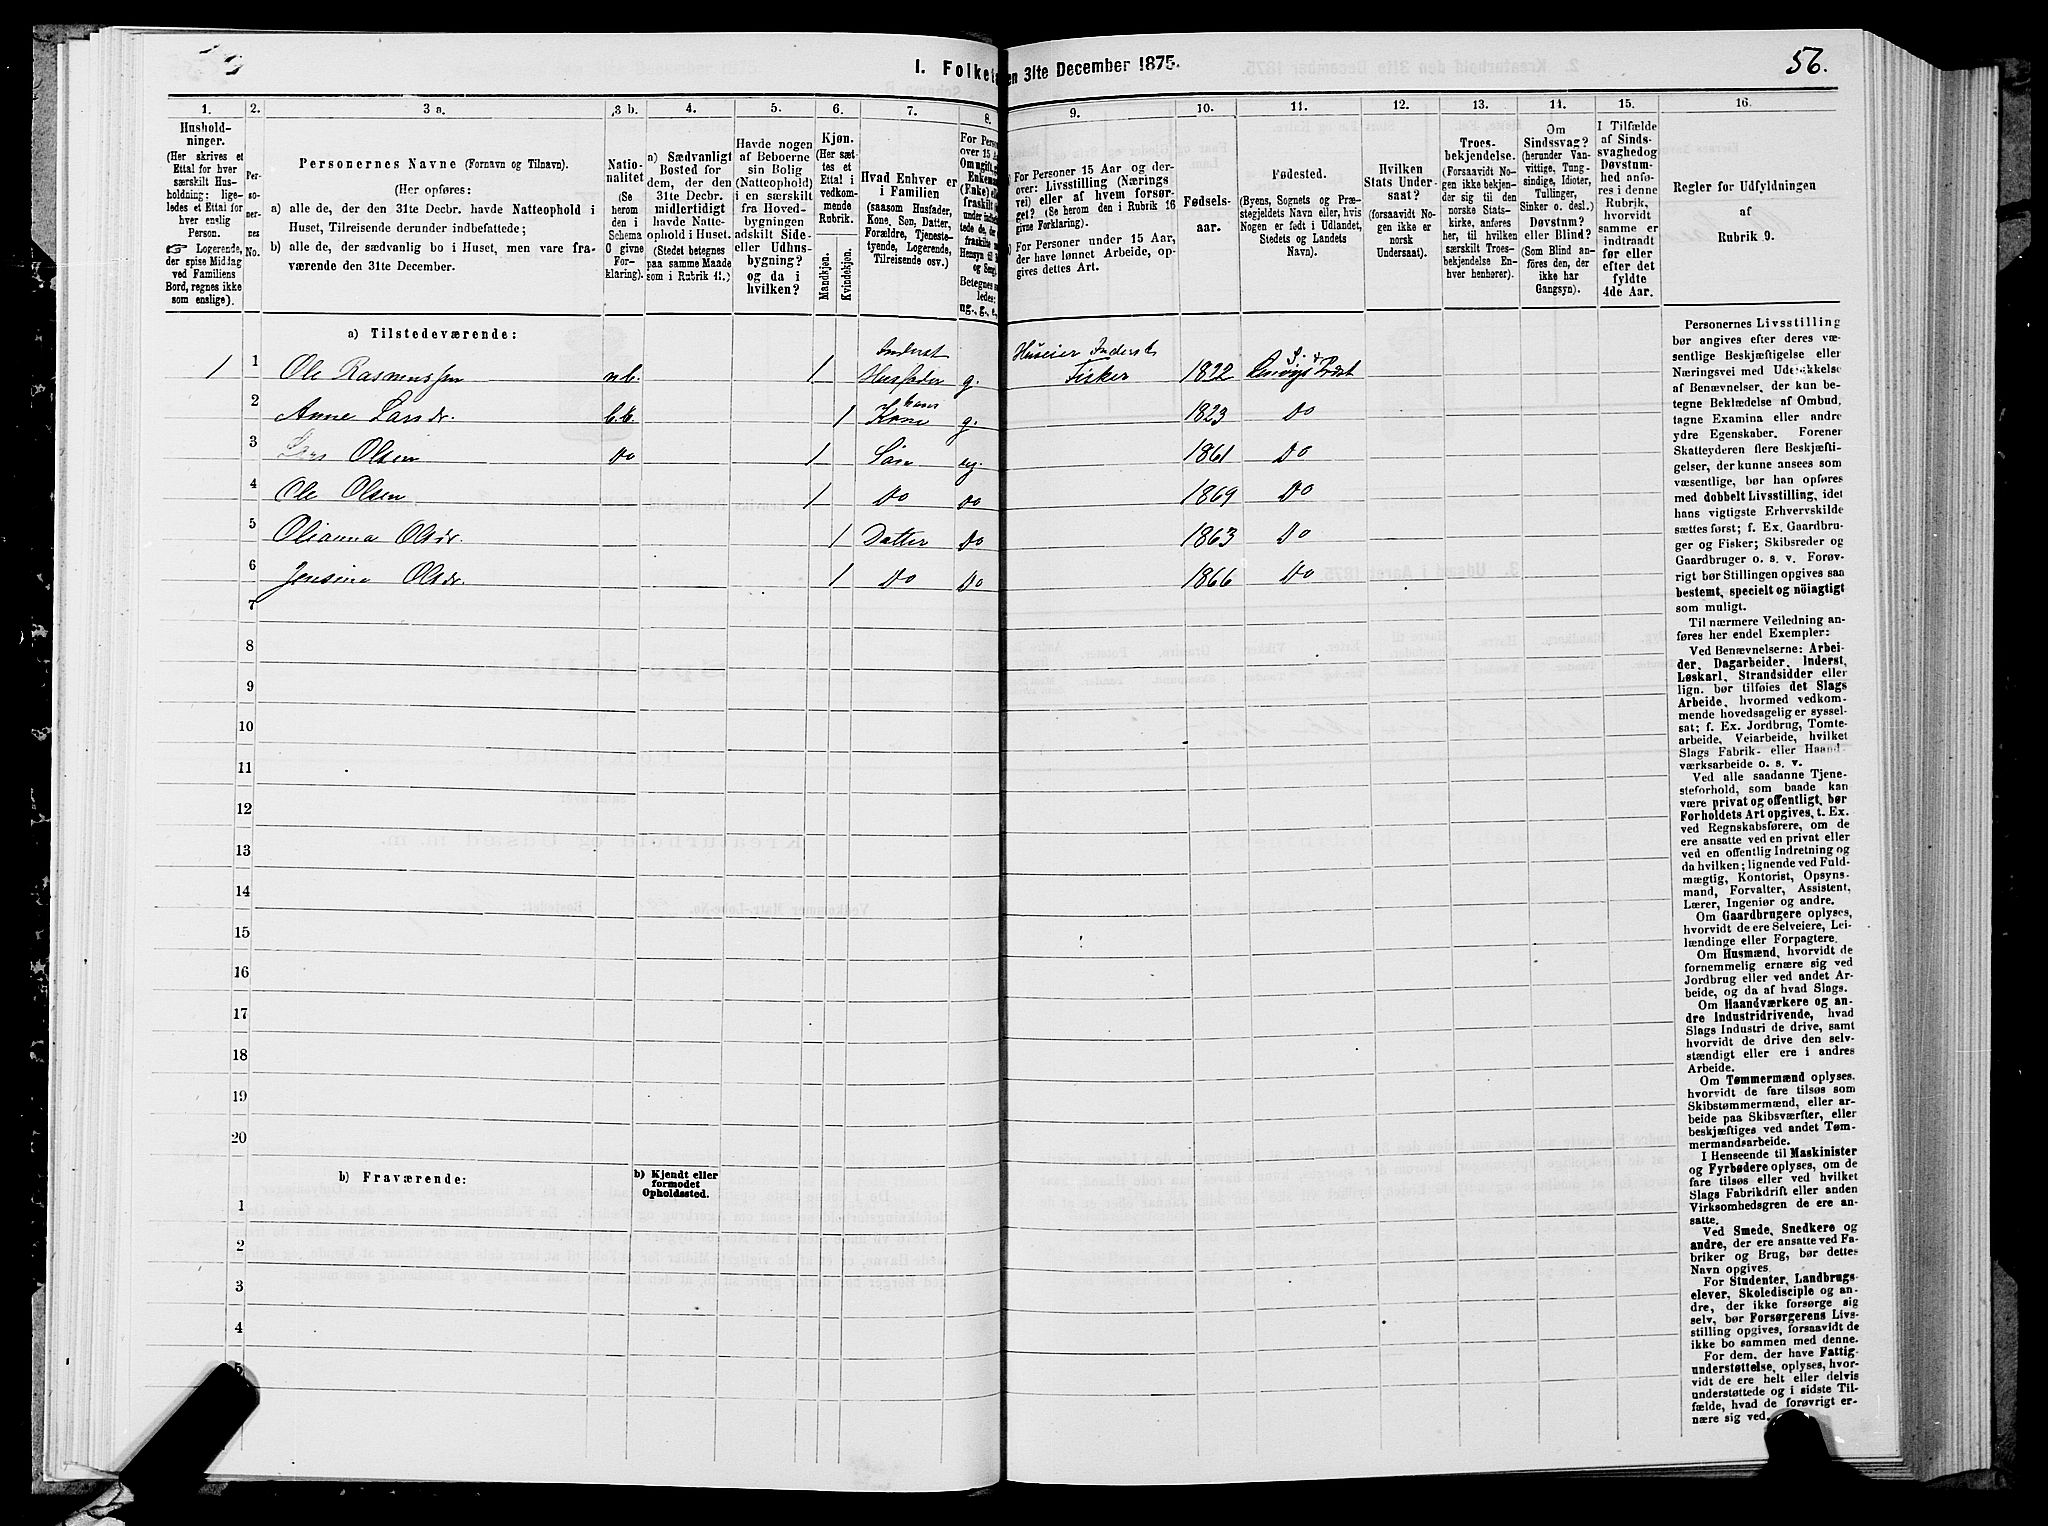 I. Folketæ
en 31te December 1875.
56.
1.
2.
3 a.
3 b.
4.
5.
6.
7.
8.
9.
10.
11.
12.
13.
14.
15.
16.
Hushold-
ninger.
(Her skrives et
Ettal for hver
særskilt Hus-
holdning; lige-
ledes et Ettal for
hver enslig
Person.
☞ Logerende,
der spise Middag
ved Familiens
Bord, regnes ikke
som enslige).
Per-
so-
ner-
nes
No.
Personernes Navne (Fornavn og Tilnavn).
(Her opføres:
a) alle de, der den 31te Decbr. havde Natteophold i
Huset, Tilreisende derunder indbefattede;
b) alle de, der sædvanlig bo i Huset, men vare fra-
værende den 31te December.
Natio-
nalitet
(Se
herom
den i
Schema
C givne
For-
klaring).
a) Sædvanligt
Bosted for
dem, der den
31te Decbr.
midlertidigt
havde Natte-
ophold i Huset.
(Stedet betegnes
paa samme Maade
som i Rubrik 11.)
Havde nogen
af Beboerne
sin Bolig
(Natteophold)
i en særskilt
fra Hoved-
bygningen
adskilt Side-
eller Udhus-
bygning?
og da i
hvilken?
Kjøn.
(Her sæt-
tes et
Ettal i
vedkom-
mende
Rubrik.
Mandkjøn.
Kvindekjøn.
Hvad Enhver er
i Familien
(saasom Husfader,
Kone, Søn, Datter,
Forældre, Tjeneste-
tyende, Logerende,
Tilreisende osv.)
For Personer 15 Aar og der-
over: Livsstilling (Nærings
vei) eller af hvem forsør-
get? (Se herom den i Rubrik 16
givne Forklaring).
For Personer under 15 Aar,
der have lønnet Arbeide, op-
gives dettes Art.
Fødsels-
aar.
Fødested.
(Byens, Sognets og Præ-
stegjeldets Navn eller, hvis
Nogen er født i Udlandet,
Stedets og Landets
Navn).
Hvilken
Stats Under-
saat?
(forsaavidt No-
gen ikke er
norsk
Undersaat).
Troes-
bekjendelse.
(Forsaavidt No-
gen ikke bekjen-
der sig til den
norske Stats-
kirke, anføres
her, til hvilken
særskilt Troes-
bekjendelse En-
hver henhører).
Om
Sindssvag?
(herunder Van-
vittige, Tung-
sindige, Idioter,
Tullinger,
Sinker o. desl.)
Døvstum?
eller Blind?
(Som Blind an-
føres den, der
ikke har
Gangsyn).
I Tilfælde
af Sinds-
svaghed og
Døvstum-
hed anfø-
res i denne
Rubrik,
hvorvidt
samme er
indtraadt
før eller
efter det
fyldte
4de Aar.
Regler for Udfyldningen
af
Rubrik 9.
a) Tilstedeværende:
1 1 Ole Rasmussen n.b. 1 Inderst Husfader g. Huseier Inderst Fisker 1822
2 Anne Larsdr. b.b. 1 hans Kone g. 1823 Do
3 Lars Olsen Do 1 Søn ug. 1861 Do
4 Ole Olsen 1 Do Do 1869 Do
5 Olianna Olsdr. 1 Datter Do 1863 Do
6 Jensine Olsdr. 1 Do Do 1866 Do
7
8
9
10
11
12
13
14
15
16
17
18
19
20
b) Fraværende:
b) Kjendt eller
formodet
Opholdssted.
1
2
3
4
5
Personernes Livsstilling
bør angives efter deres væ-
sentlige Beskjæftigelse eller
Næringsvei med Udelukkelse
af Benævnelser, der kun be-
tegne Beklædelse af Ombud,
tagne Examina eller andre
ydre Egenskaber. Forener
Skatteyderen flere Beskjæfti-
gelser, der kunne ansees som
væsentlige, bør han opføres
med dobbelt Livsstilling, idet
hans vigtigste Erhvervskilde
sættes først; f. Ex. Gaardbru-
ger og Fisker; Skibsreder og
Gaardbruger o. s. v. Forøv-
rigt bør Stillingen opgives saa
bestemt, specielt og nöiagtigt
som muligt.
Til nærmere Veiledning an-
føres her endel Exempler:
Ved Benævnelserne: Arbei-
der, Dagarbeider, Inderst,
Løskarl, Strandsidder eller
lign. bør tilføies det Slags
Arbeide, hvormed vedkom-
mende hovedsagelig er syssel-
sat; f. Ex. Jordbrug, Tomte-
arbeide, Veiarbeide, hvilket
Slags Fabrik- eller Haand-
værksarbeide o. s. v.
Ved alle saadanne Tjene-
steforhold, som baade kan
være privat og offentligt, bør
Forholdets Art opgives, t. Ex.
ved Regnskabsførere, om de
ere ansatte ved en privat eller
ved en offentlig Indretning og
da hvilken; lignende ved Fuld-
mægtig, Kontorist, Opsyns-
mand, Forvalter, Assistent,
Lærer, Ingeniør og andre.
Om Gaardbrugere oplyses,
hvorvidt de ere Selveiere, Lei-
lændinge eller Forpagtere.
Om Husmænd, hvorvidt de
fornemmelig ernære sig ved
Jordbrug eller ved andet Ar-
beide, og da af hvad Slags.
Om Haandværkere og an-
dre Industridrivende, hvad
Slags Industri de drive, samt
hvorvidt de drive den selv-
stændigt eller ere i andres
Arbeide.
Om Tømmermænd oplyses,
hvorvidt de fare tilsøs som
Skibstømmermænd, eller ar-
beide paa Skibsværfter, eller
beskjæftiges ved andet Tøm-
mermandsarbeide.
I Henseende til Maskinister
og Fyrbødere oplyses, om de
fare tilsøs eller ved hvilket
Slags Fabrikdrift eller anden
Virksomhedsgren de ere an-
satte.
Ved Smede, Snedkere og
andre, der ere ansatte ved Fa-
briker og Brug, bør dettes
Navn opgives.
For Studenter, Landbrugs-
elever, Skoledisciple og an-
dre, der ikke forsørge sig
selv, bør Forsørgerens Livs-
stilling opgives, forsaavidt de
ikke bo sammen med denne.
For dem, der have Fattig-
understøttelse, oplyses, hvor-
vidt de ere helt eller delvis
understøttede og i sidste Til-
fælde, hvad de forøvrigt er-
nære sig ved.